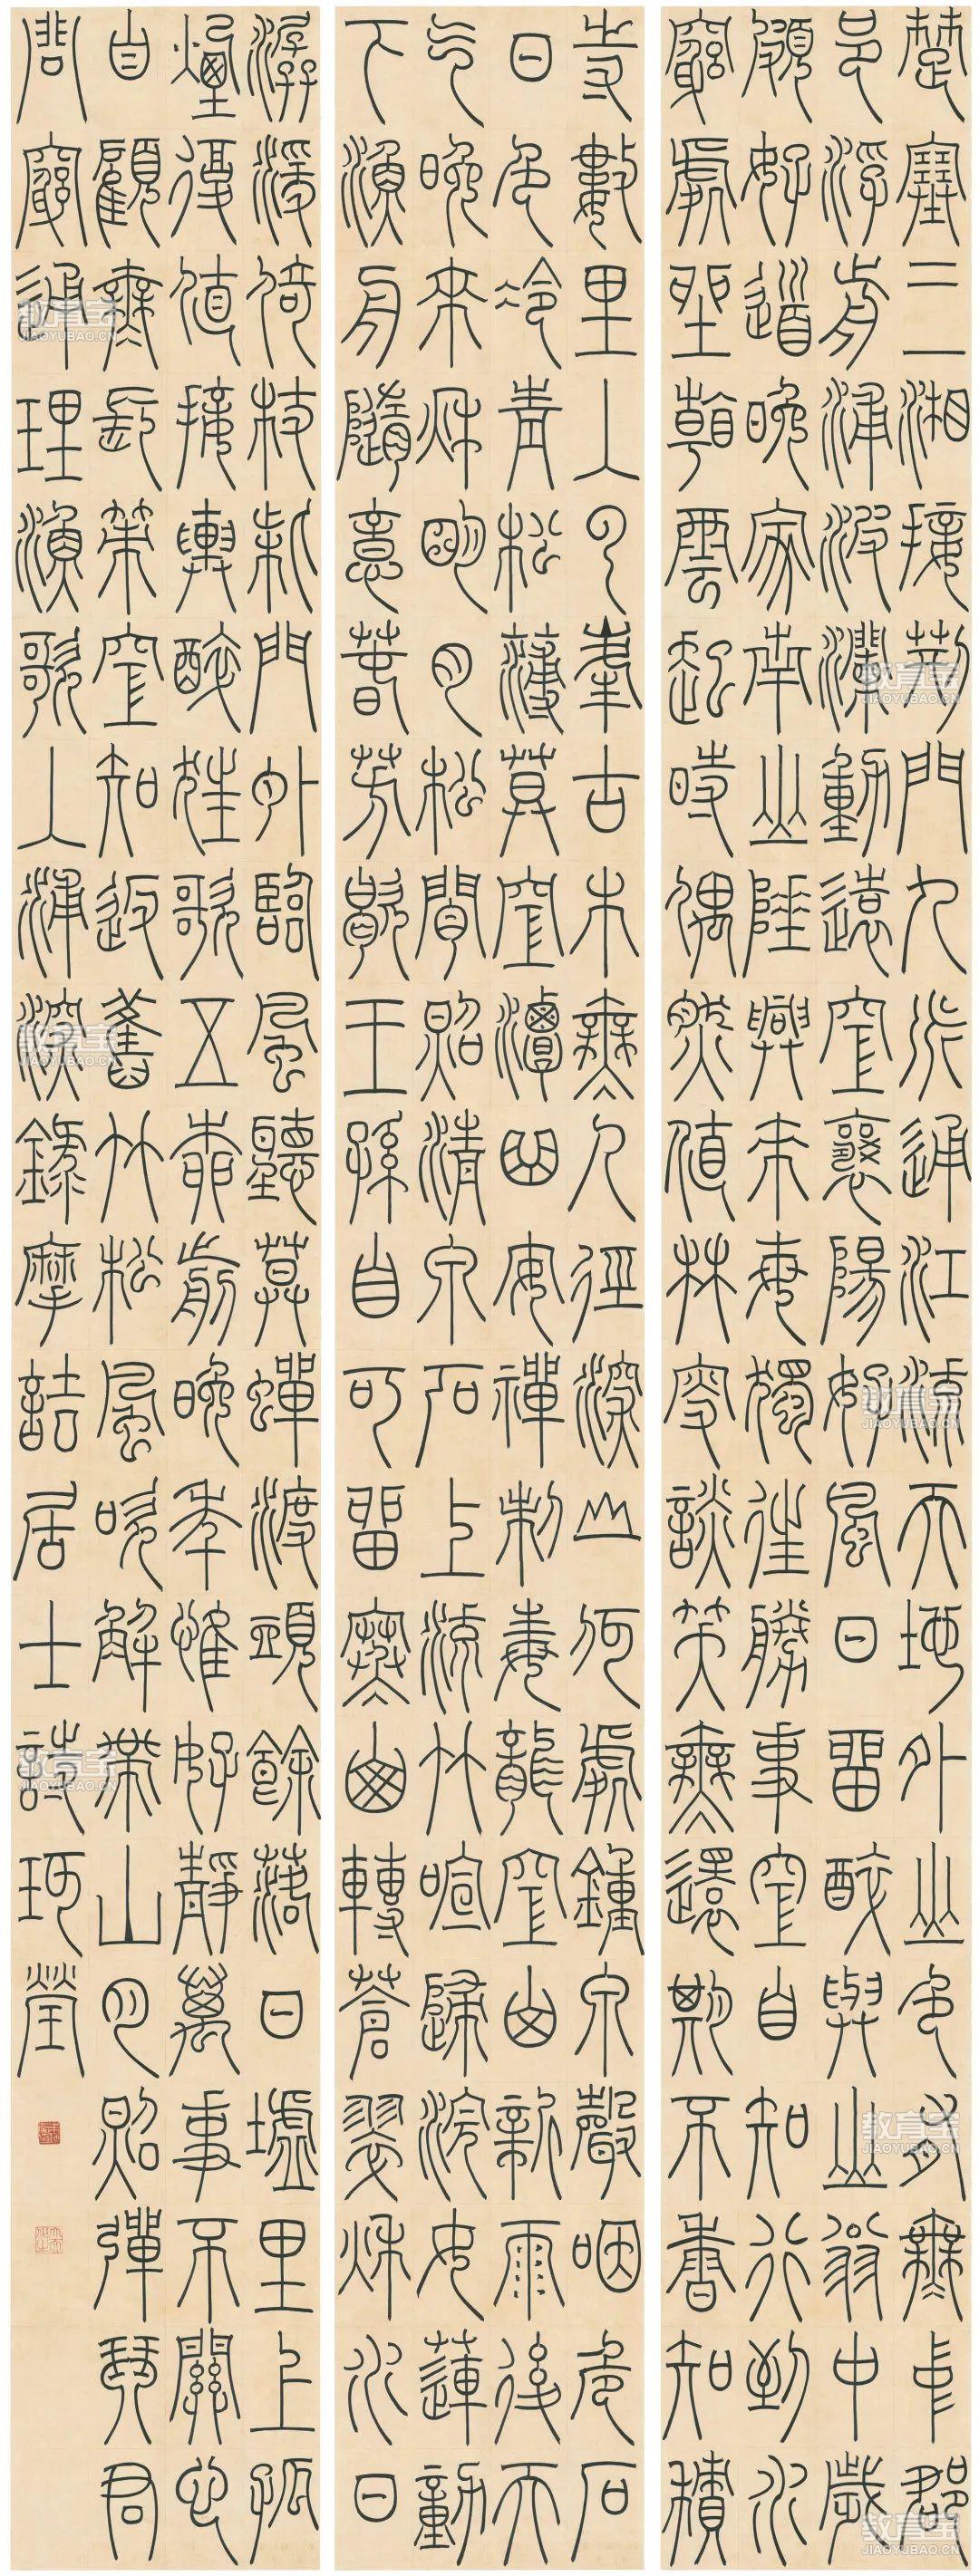 楚塞三湘接荊門九派通江流天地外山色有無中郡
邑浮前浦波瀾動遠空襄陽好風日留醉與山翁中歲
頗好道晚家南山陲興來每獨往勝事空自知行到水
窮處坐看雲起時偶然值林叟談笑無還期不香知積
寺數里入云峯古木無人徑深山何處鐘泉聲咽危石
日色冷青松薄暮空潭曲安禪制毒龍空山新雨後天
气晚來秋明月松間照清泉石上流竹喧歸浣女蓮動
下漁舟隨意春芳歇王孫自可留寒山轉蒼翠秋水日
潺湲倚杖柴門外臨風聽暮蟬渡頭餘落日墟里上孤
煙復值接輿醉狂歌五柳前晚年惟好靜萬事不關心
自顧無長策空知返舊竹松風吹解帶山月照彈琴君
問窮通理漁歌入浦深錄摩詰居士詩珂瑩
教育宝
JIAOYUBAO.CN